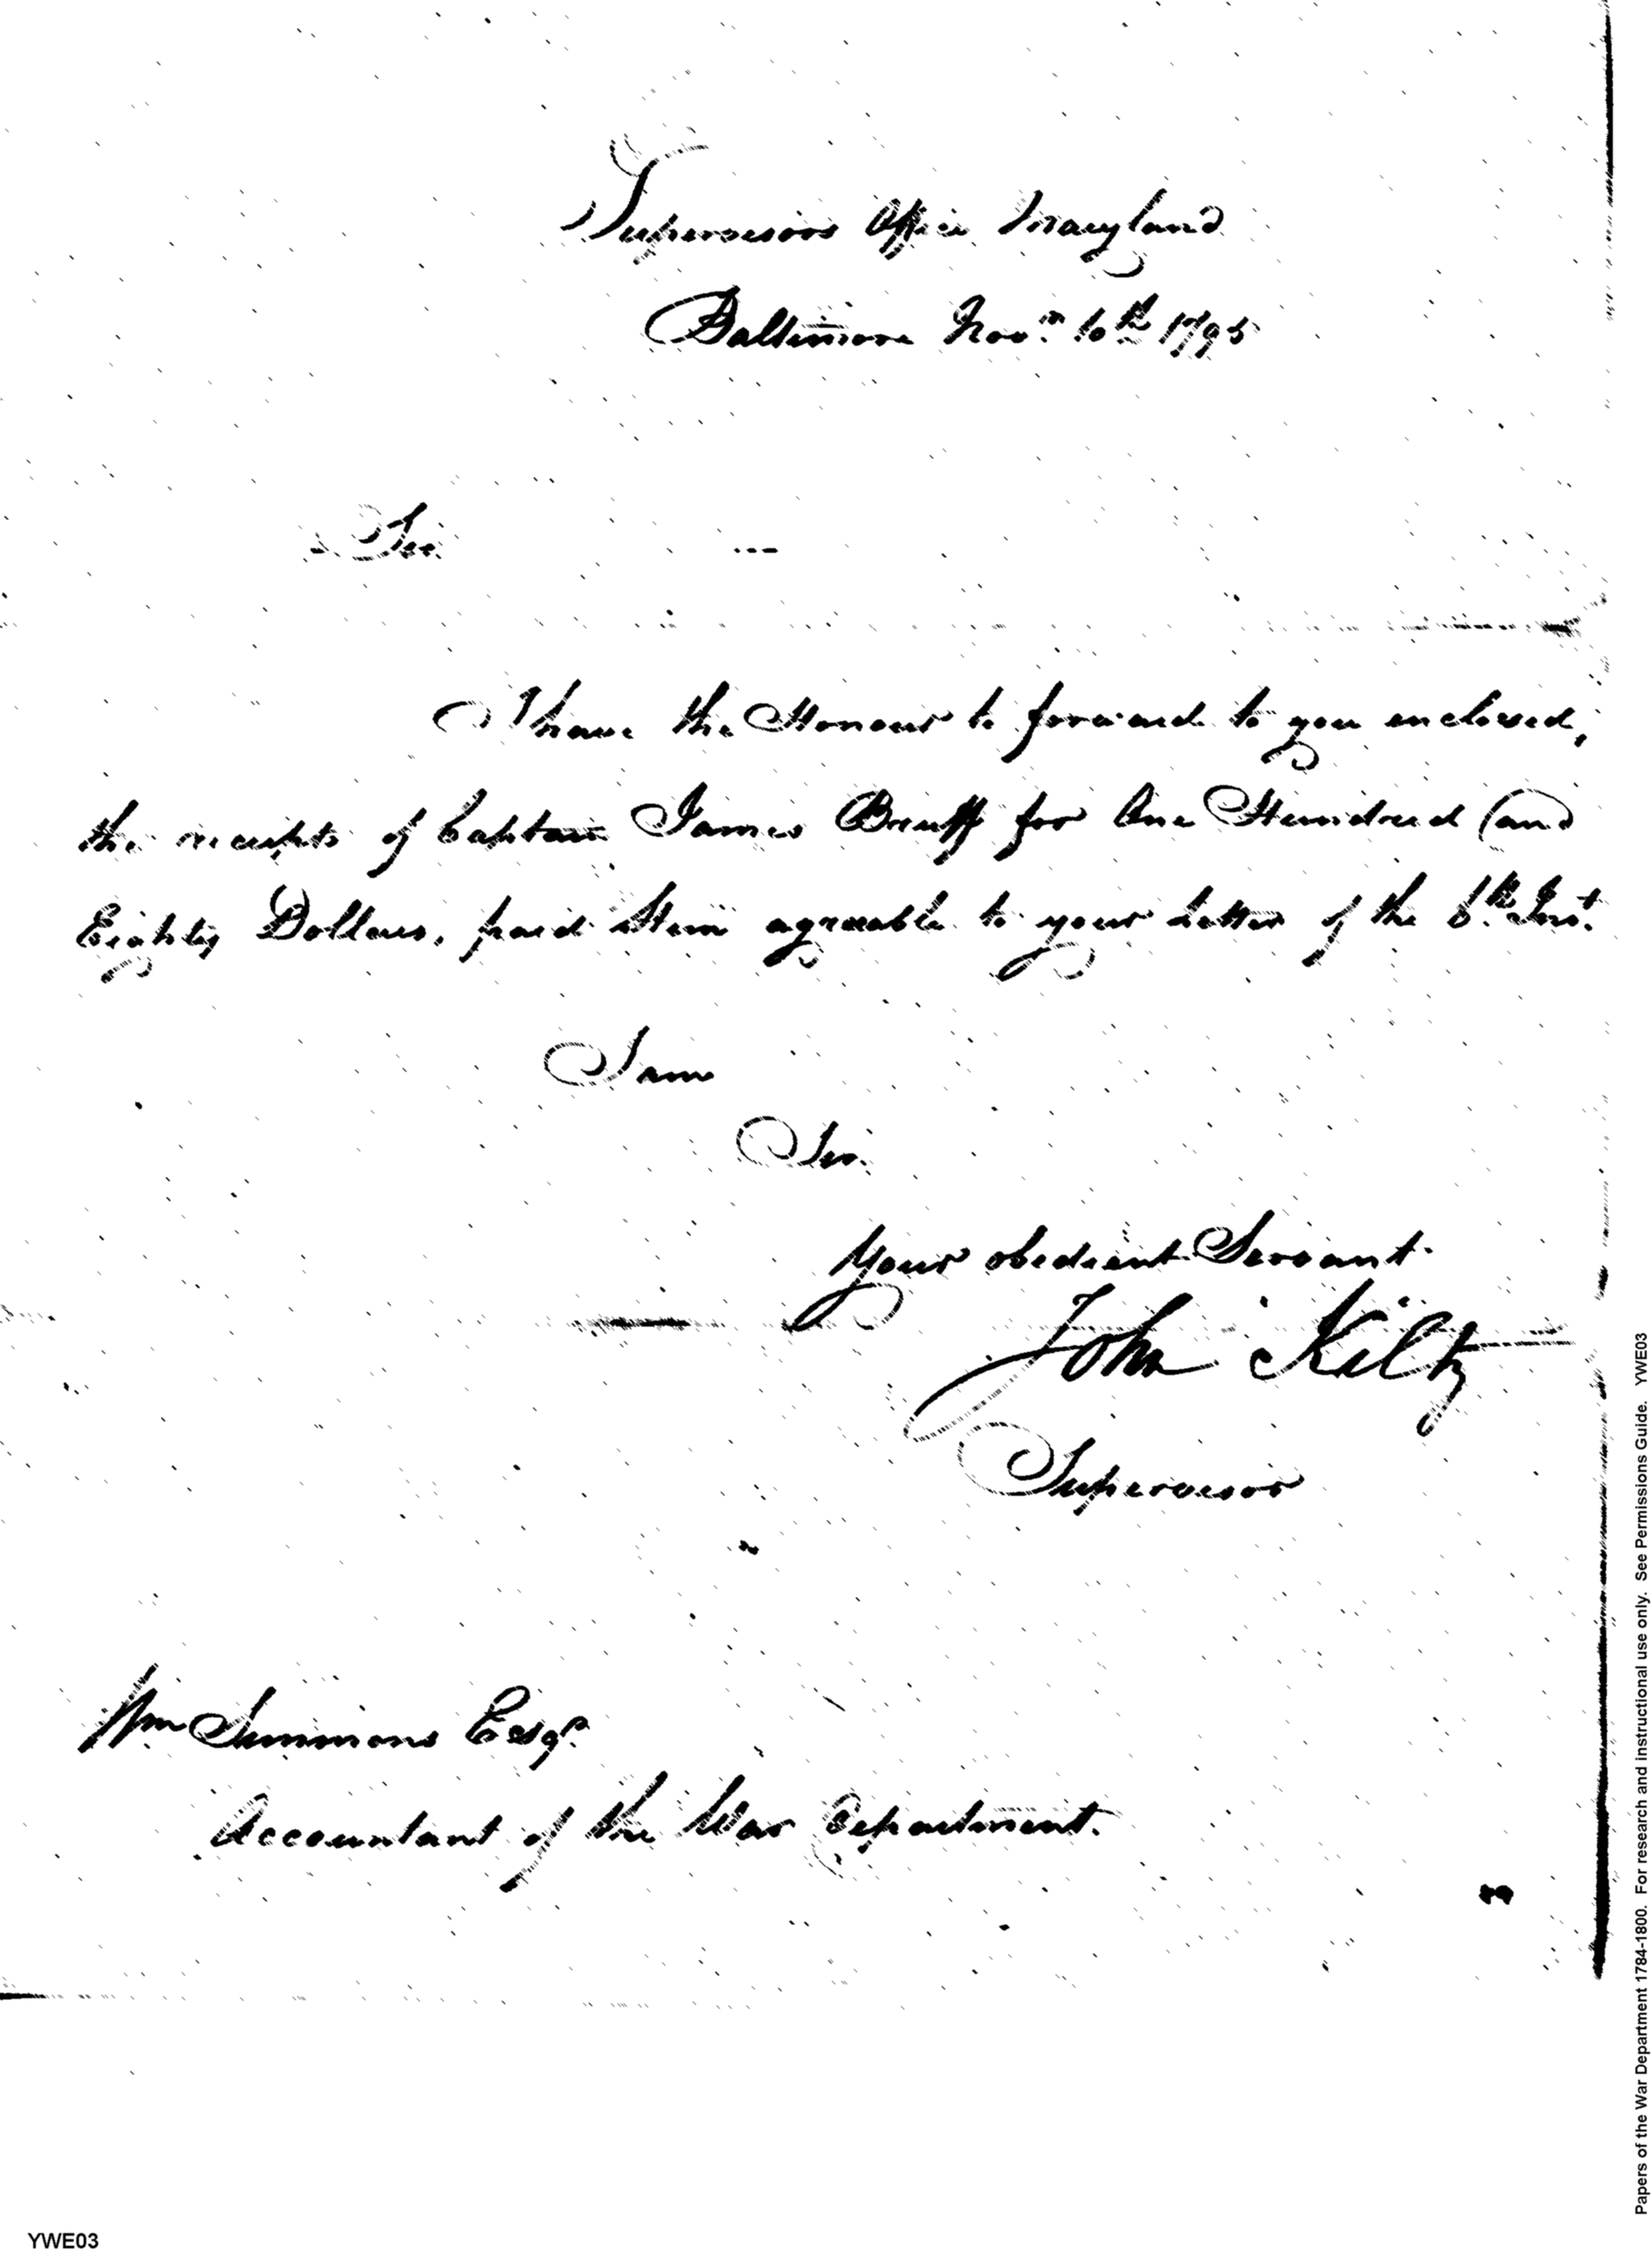 Supervisors Office Maryland
Baltimore Novr. 10th 1795
Sir.
I have the Honour to forward to you enclosed,
the receipts of Captain James Bruff for One Hundred and
Eighty Dollars, paid Him agreeable to your Letter of the 6th. Inst.
I am
Sir.
Your obedient Servant.
John Kilty
Supervisor
Wm Simmons Esqr.
Accountant of the War Department.
YWE03
Papers of the War Department 1784-1800. For research and instructional use only. See Permissions Guide. YWE03